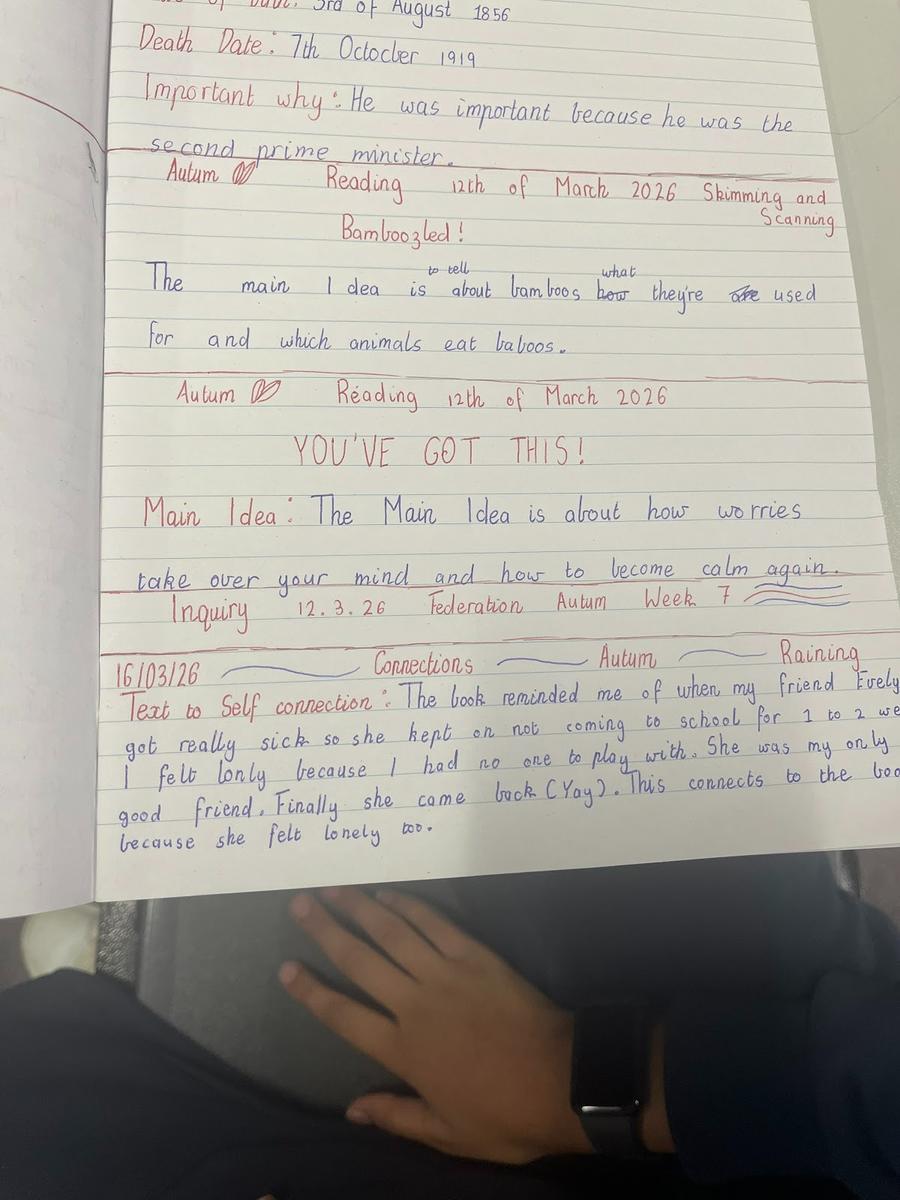 3rd of August 1856
Death Date: 7th Octocber 1919
Important why: He was important because he was the
second prime minister.
Autum Reading 12th of March 2026 Skimming and
Scanning
Bamboozled!
to tell what
The main Idea is about bamboos how they're are used
for and which animals eat baboos.
Autum Reading 12th of March 2026
YOU'VE GOT THIS!
Main Idea: The Main Idea is about how worries
take over your mind and how to become calm again.
Inquiry 12.3.26 Federation Autum Week 7
16/03/26 Connections Autum Raining
Text to Self connection: The book reminded me of when my friend Evely
got really sick so she kept on not coming to school for 1 to 2 we
I felt lonly because I had no one to play with. She was my only
good friend. Finally she came back (Yay). This connects to the boo
because she felt lonely too.